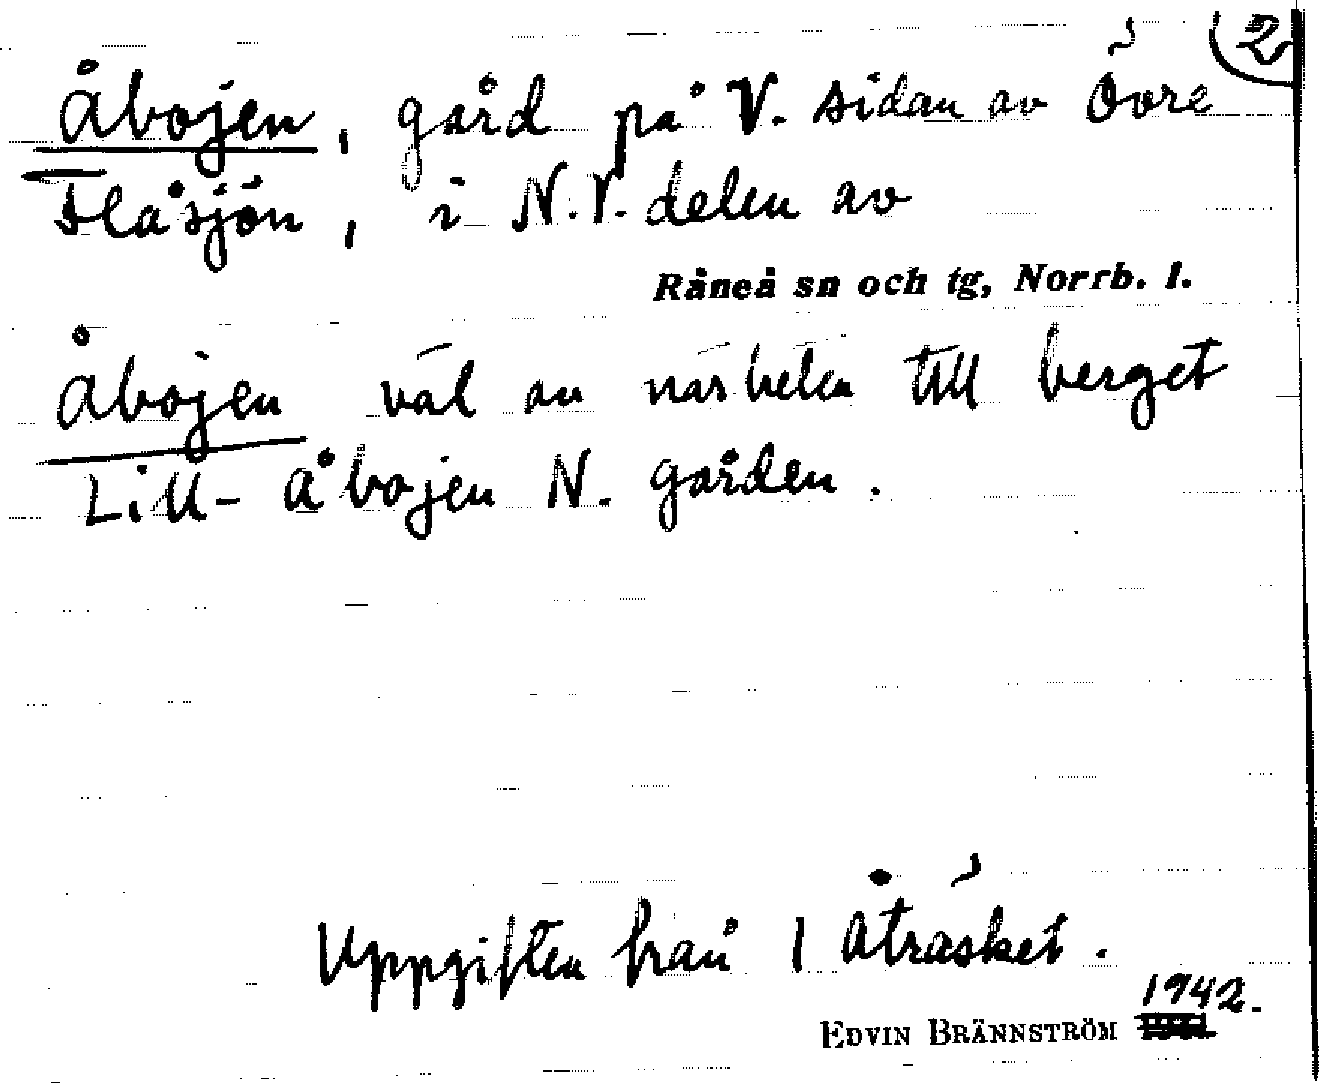 2
Åbojen, gård på V. sidan av Övre
Flåsjön, i N.V. delen av
Råneå sn och tg, Norrb. l.
Åbojen väl en närhelen till berget
Lill-Åbojen N. gården.
Uppgiften från 1 Åträsket.
1942.
EDVIN BRÄNNSTRÖM